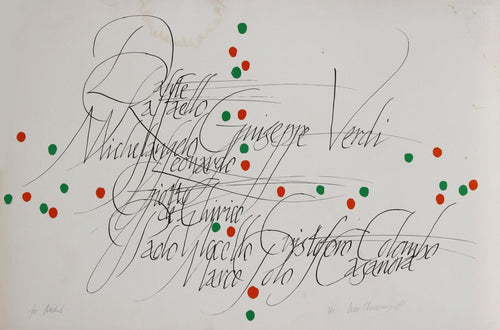 Dante
Raffaello
Michelangelo Giuseppe Verdi
Leonardo
Giotto
de Chirico
Paolo Uccello Cristoforo Colombo
Marco Polo Casanova